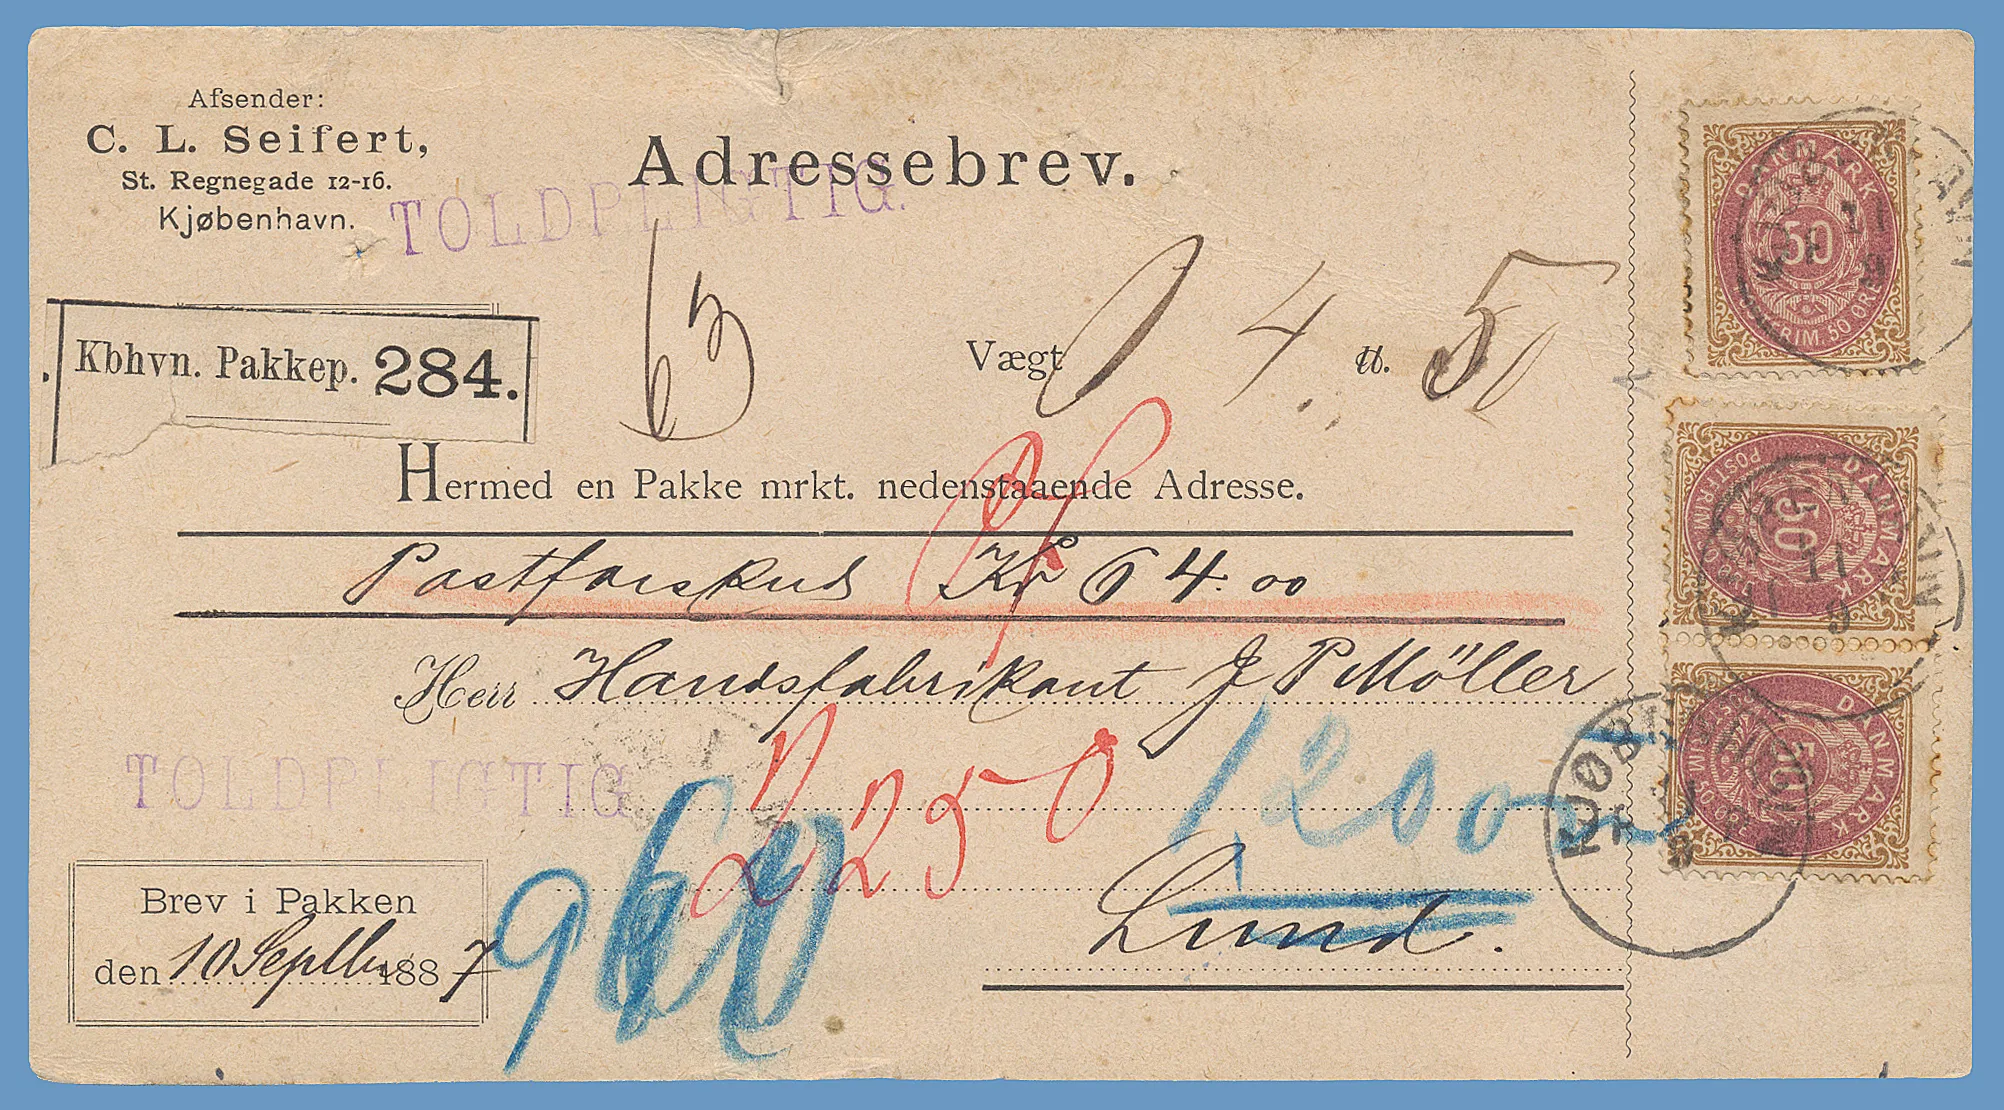 Afsender:
C. L. Seifert,
St. Regnegade 12-16.
Kjøbenhavn.
Adressebrev.
TOLDPLIGTIG.
63
Vægt 4 ℔. 50
Kbhvn. Pakkep. 284.
Hermed en Pakke mrkt. nedenstaaende Adresse.
Postforskud Kr 64.00
Herr Handsfabrikant J P Möller
TOLDPLIGTIG
2250
1200
960
Lund.
Brev i Pakken
den 10 Septbr 1887
DANMARK
50
POSTFRIM. 50 ØRE
DANMARK
50
POSTFRIM. 50 ØRE
DANMARK
50
POSTFRIM. 50 ØRE
KJØBENHAVN
11 9